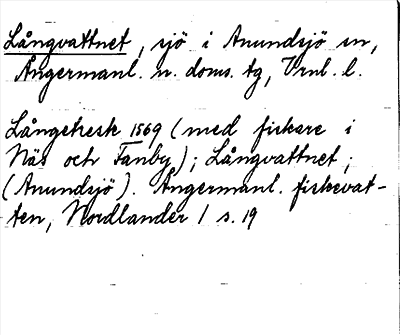 Långvattnet, sjö i Anundsjö sn,
Ångermanl. n. doms. tg, Vrnl. l.
Långetresk 1569 (med fiskare i
Näs och Fanby); Långvattnet;
(Anundsjö). Ångermanl. fiskevat-
ten, Nordlander 1 s. 19